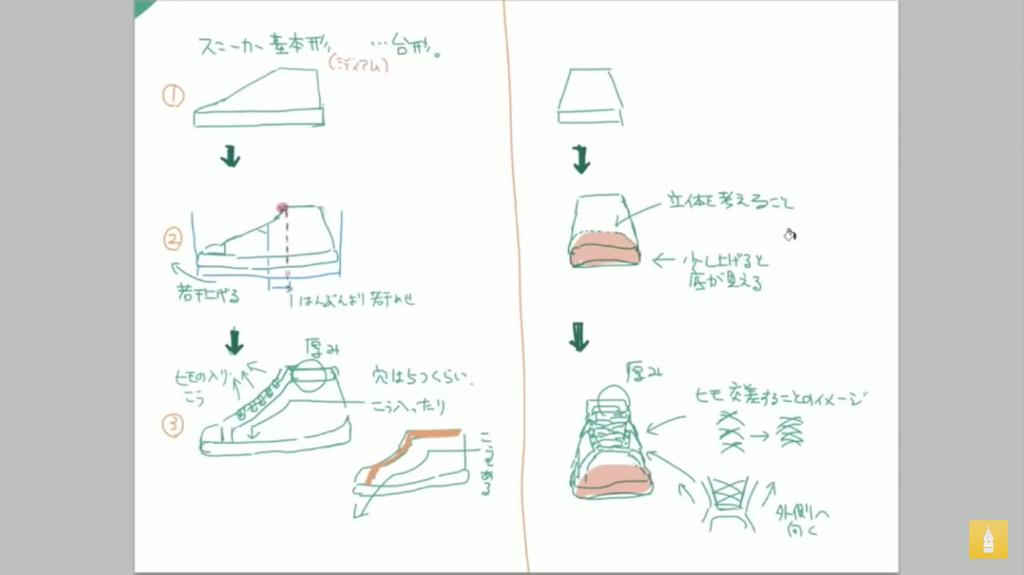 スニーカー基本形 …台形。
(ミディアム)
①
②
若干上げる
1はんぶんより若干
立体を考えること
少し上げると
底が見える
③
厚み
ヒモの入り
こう
穴は5つくらい.
こう入ったり
こうもある
厚み
ヒモ交差することのイメージ
外側へ
向く